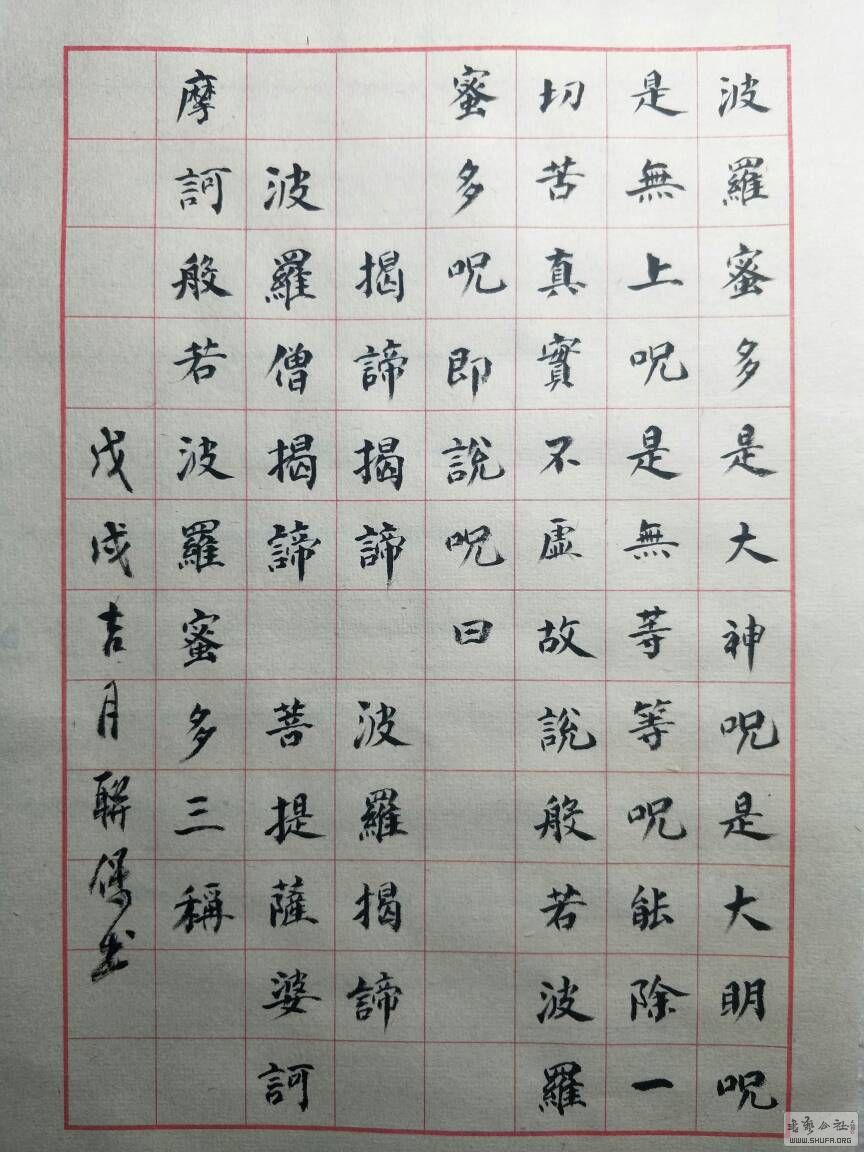 波羅蜜多是大神呪是大明呪
是無上呪是無等等呪能除一
切苦真實不虛故說般若波羅
蜜多呪即說呪曰
揭諦揭諦 波羅揭諦
波羅僧揭諦 菩提薩婆訶
摩訶般若波羅蜜多三稱
戊戌吉月聯偶書
WWW.SHUFA.ORG